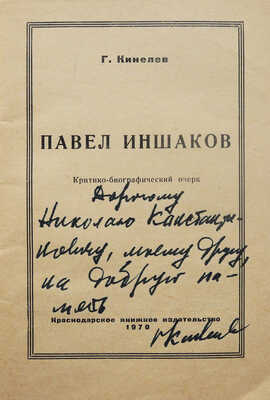 Г. Кинелев
ПАВЕЛ ИНШАКОВ
Критико-биографический очерк
Дорогому
Николаю Константи-
новичу, моему другу,
на добрую па-
мять
Краснодарское книжное издательство
1970